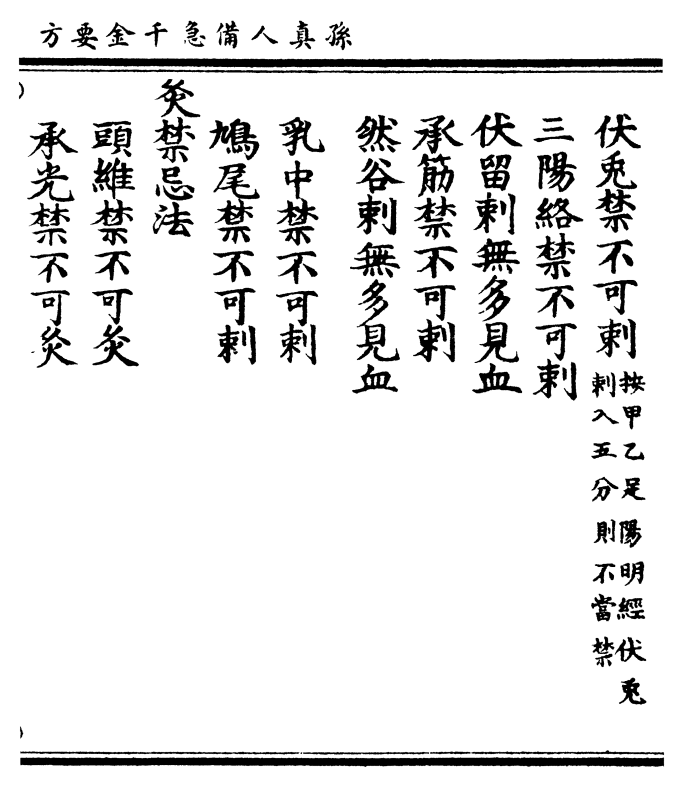 孫真人備急千金要方
伏兎禁不可刺
按甲乙足陽明經伏兎
刺入五分則不當禁
三陽絡禁不可刺
伏留刺無多見血
承筋禁不可刺
然谷刺無多見血
乳中禁不可刺
鳩尾禁不可刺
灸禁忌法
頭維禁不可灸
承光禁不可灸